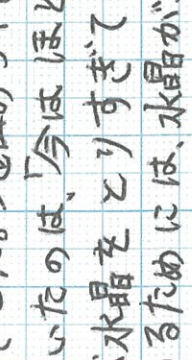 いたのは、「今はほと
水晶をとりすぎて
るためには、水晶が